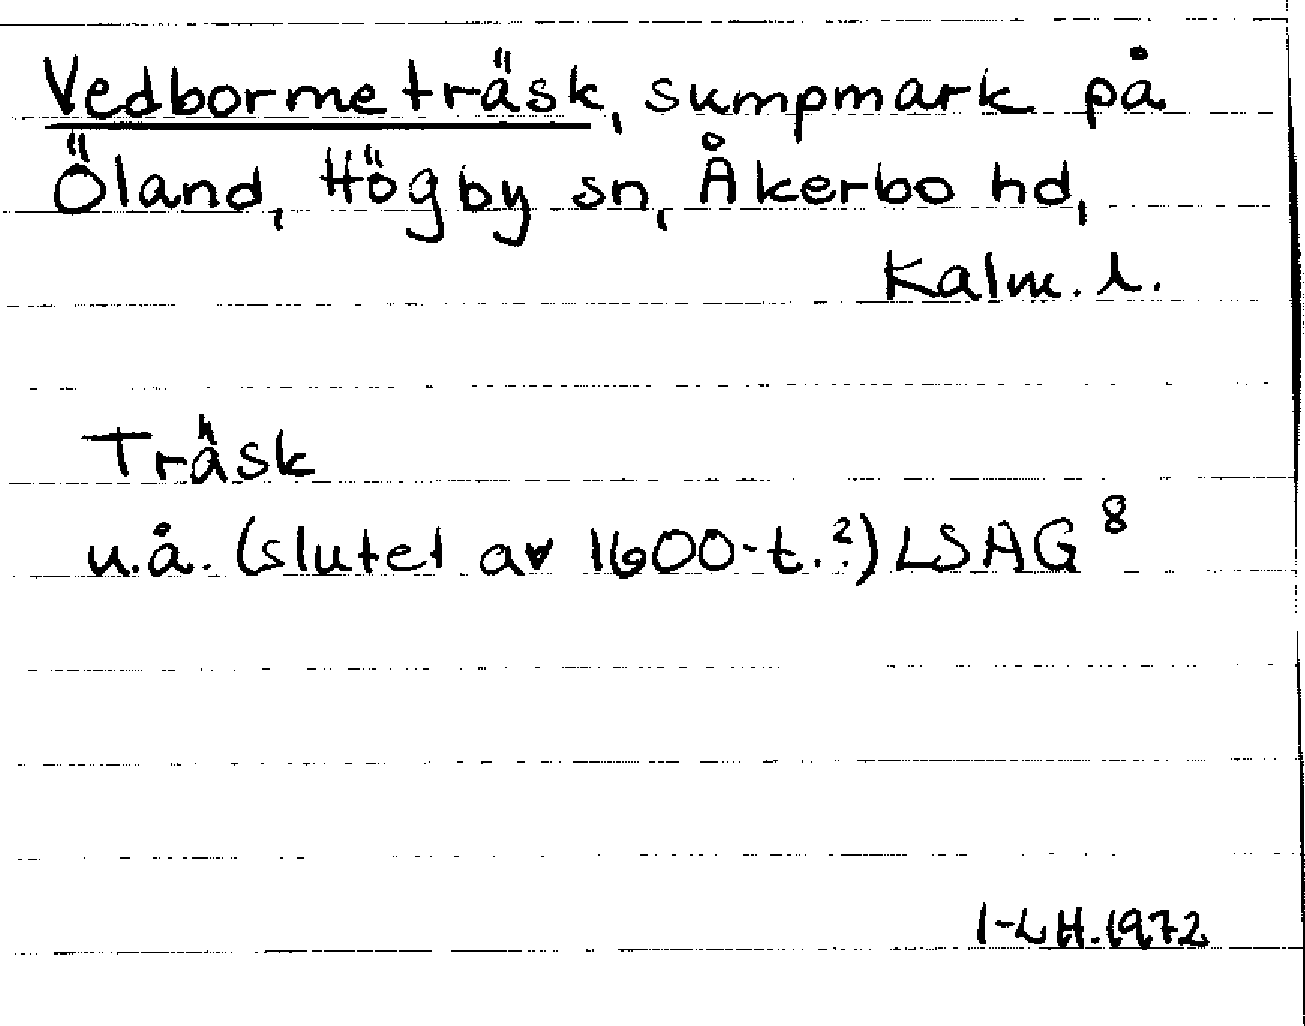 Vedbormeträsk, sumpmark på
Öland, Högby sn, Åkerbo hd,
Kalm. l.
Träsk
u.å. (slutet av 1600-t.?) LSAG 8
I-LH.1972